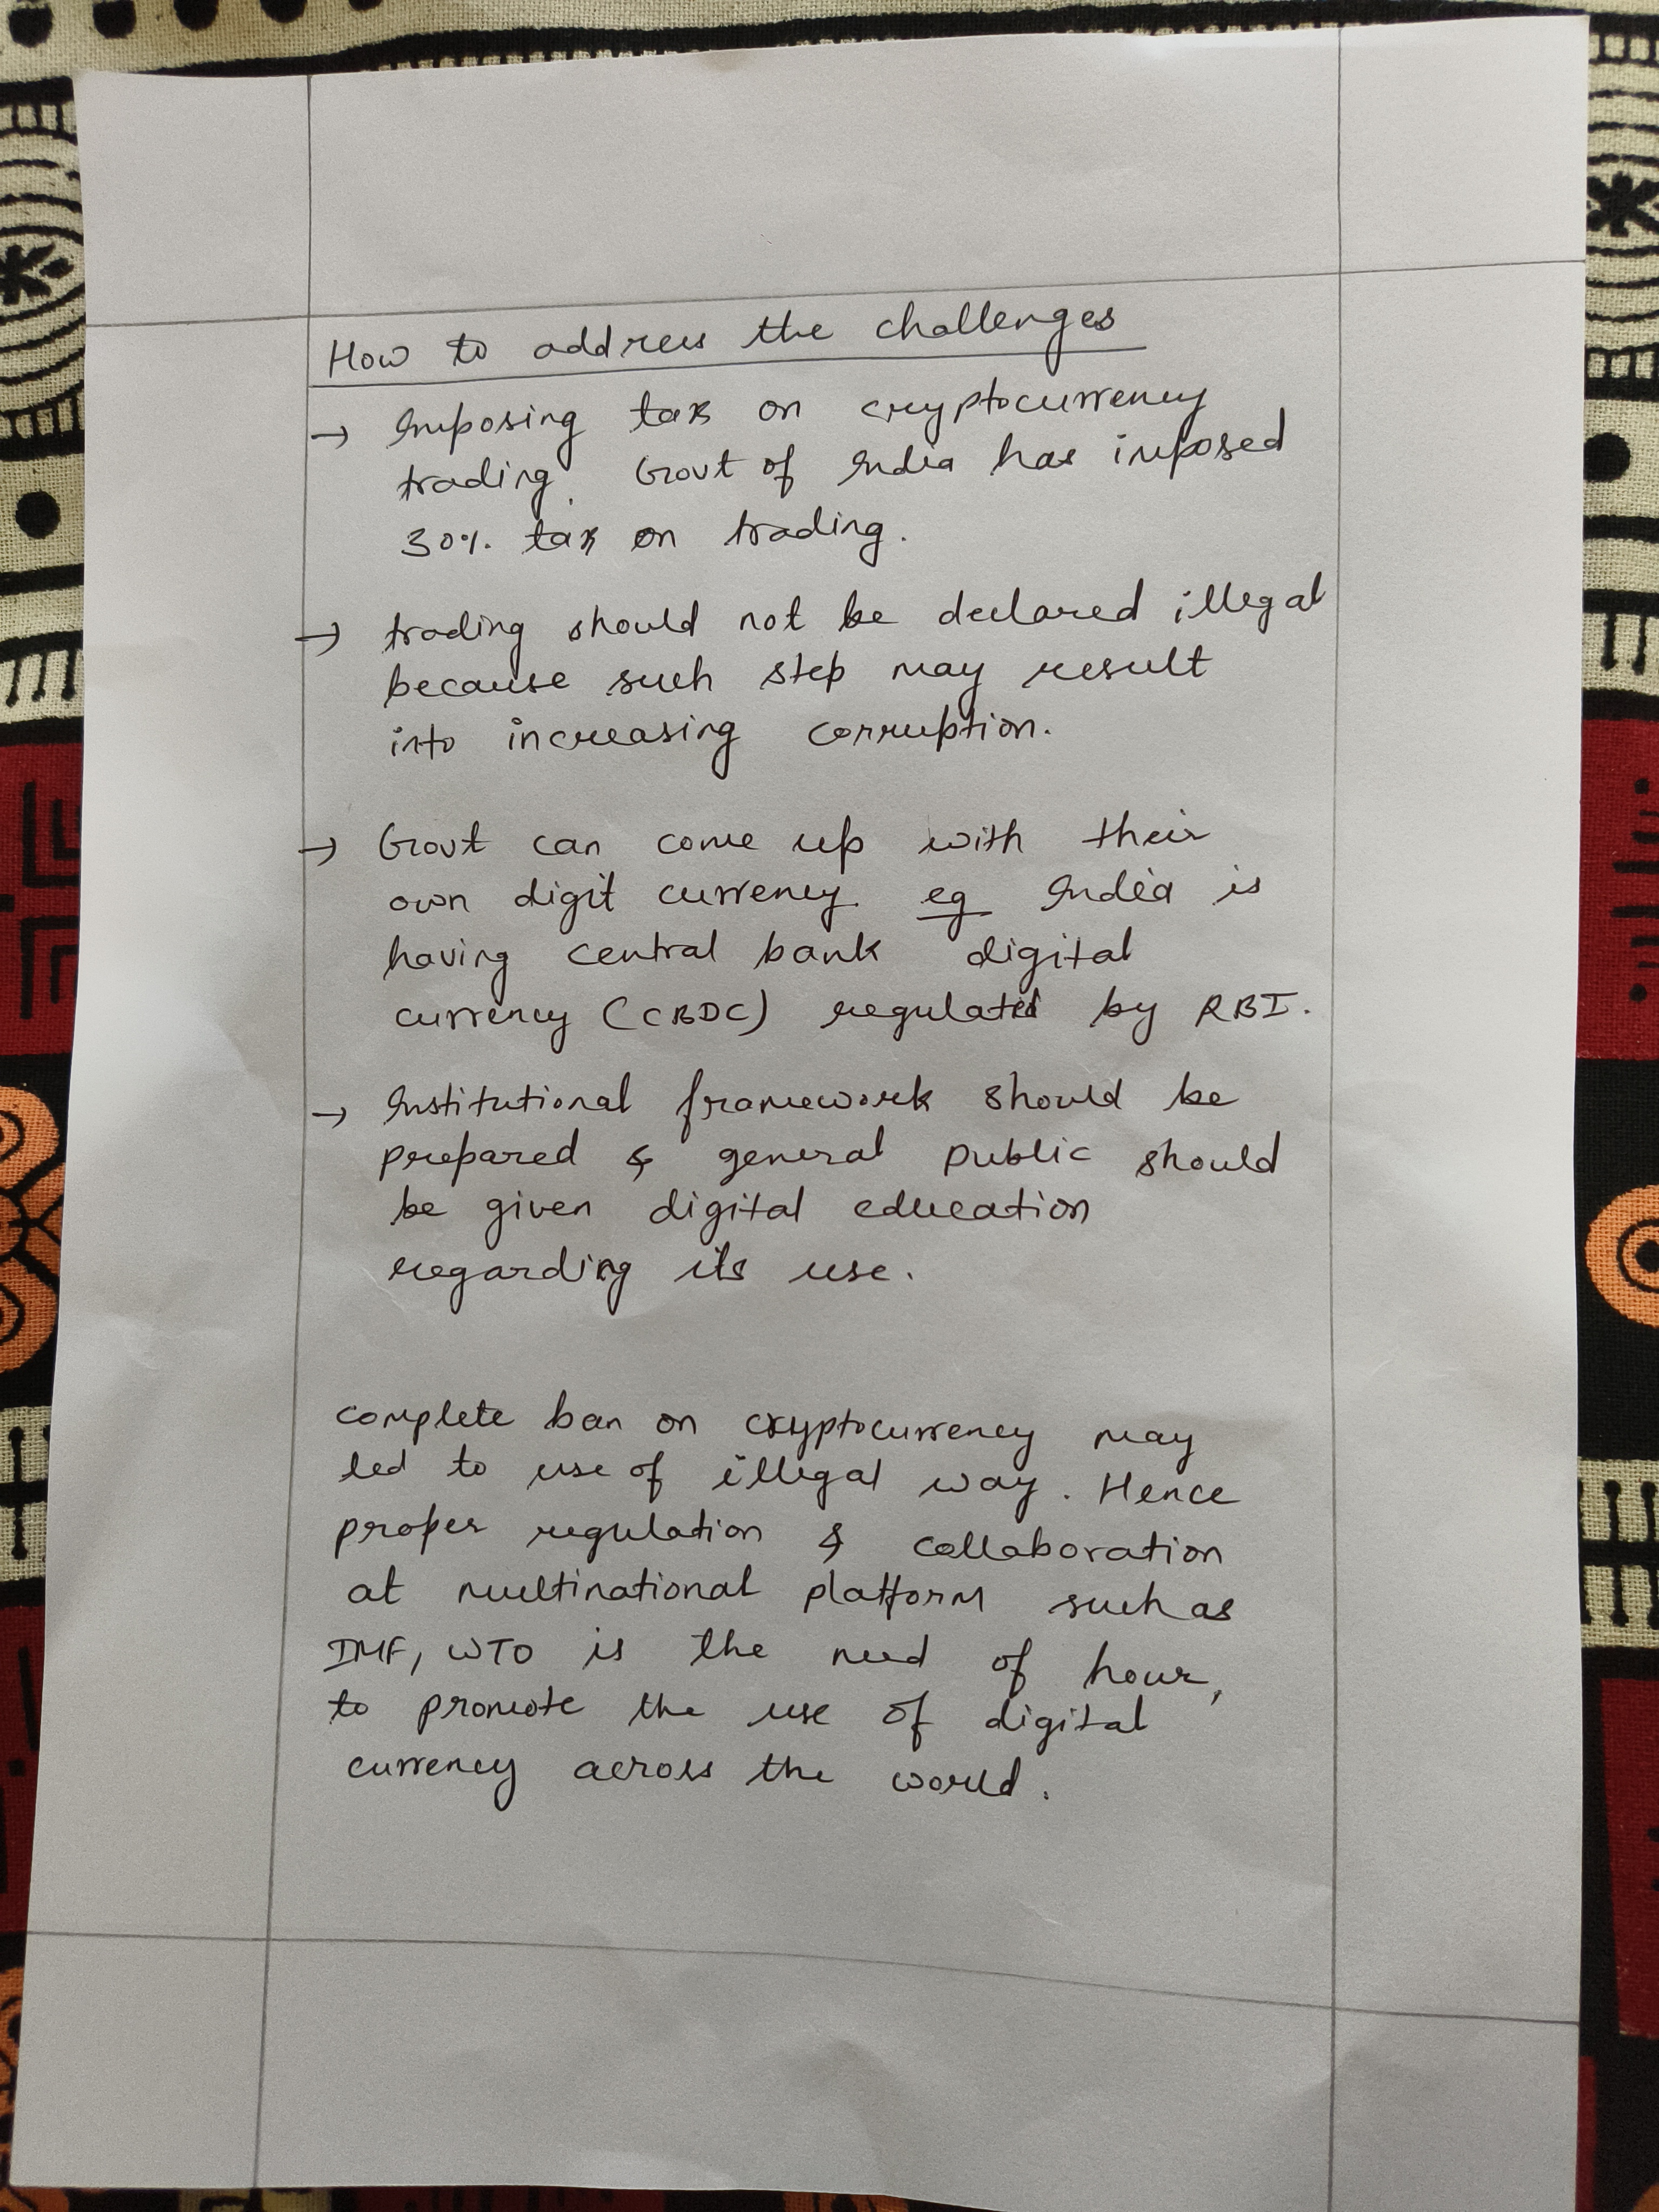 How to address the challenges
→ Imposing tax on cryptocurrency
trading. Govt of India has imposed
30% tax on trading.
→ trading should not be declared illegal
because such step may result
into increasing corruption.
→ Govt can come up with their
own digit currency eg India is
having central bank digital
currency (CBDC) regulated by RBI.
→ Institutional framework should be
prepared & general public should
be given digital education
regarding its use.
complete ban on cryptocurrency may
led to use of illegal way. Hence
proper regulation & collaboration
at multinational platform such as
IMF, WTO is the need of hour,
to promote the use of digital
currency across the world.